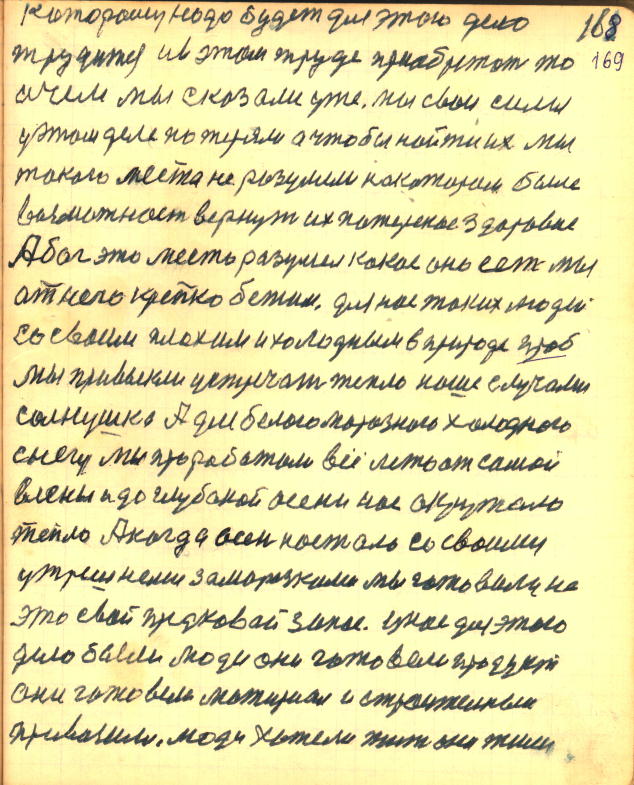 которому надо будет для этого дело 168
трудится и в этом труде приобретат то 169
о чем мы сказали уже, мы свои силы
у этом деле потеряли а чтобы найти их мы
такого места не розумели на котором была
возможност вернут их потереное здоровие
А бог это место разумел какое оно ест мы
от него крепко бежим. для нас таких людей
со своим плохим и холодным в природе чтоб
мы привыкли устречат тепло наше случами
солнушко А для белого морозного холодного
снегу мы проработали всё лето от самой
весны и до глубокой осени нас окружало
тепло А когда осен настала со своими
утрешнеми заморозками мы готовили на
это свой прдковай запас. у нас для этого
дело были люди они готовели продукт
они готовели матириал и строителным
привозили. люди хотели жит они жили